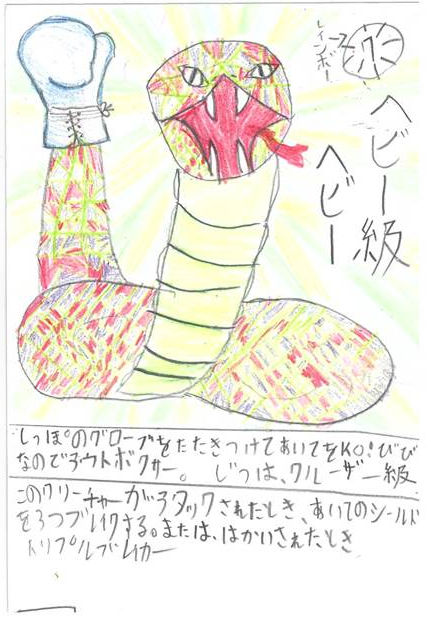 レインボー→
ヘビー級
ヘビー
しっぽのグローブをたたきつけてあいてをKO!びび
なのでアウトボクサー。 じつは、クルーザー級
このクリーチャーがアタックされたとき、あいてのシールド
を3つブレイクする。または、はかいされたとき
トリプルブレイカー